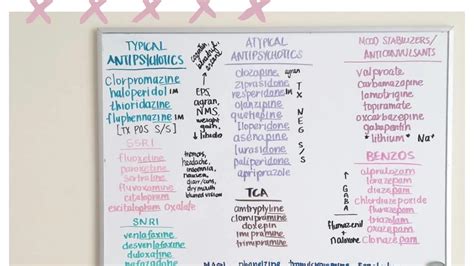 TYPICAL
ANTIPSYCHOTICS
clorpromazine
haloperidol IM
thioridazine
fluphennazine IM
[TX POS S/S]
↑
EPS,
agran,
NMS,
weight
gain,
↓ libido
SSRI
fluoxetine
paroxetine
sertraline
fluvoxamine
citalopram
escitalopram Oxalate
tremors,
headache,
insomnia,
nausea,
diarr/cons,
dry mouth
SNRI
venlafoxine
desvenlafoxine
duloxatine
ATYPICAL
ANTIPSYCHOTICS
clozapine agran
ziprasidone
resperidone IM
olanzipine
quetiapine
Iloperidone
asenapine
lurasidone
paliperidone
apriprazole
TX
NEG
S/S
TCA
amtryptyline
clomipramine
doxepin
imipramine
trimipramine
MOOD STABILIZERS/
ANTICONVULSANTS
valproate
carbamazapine
lamotrigine
topiramate
oxcarbazepine
gabapentin
*lithium* Na+
BENZOS
↑
GABA
alprazolam
lorazepam
diazepam
chlordiazepoxide
flurazepam
temazepam
triazolam
Clonazepam
flumazenil
+